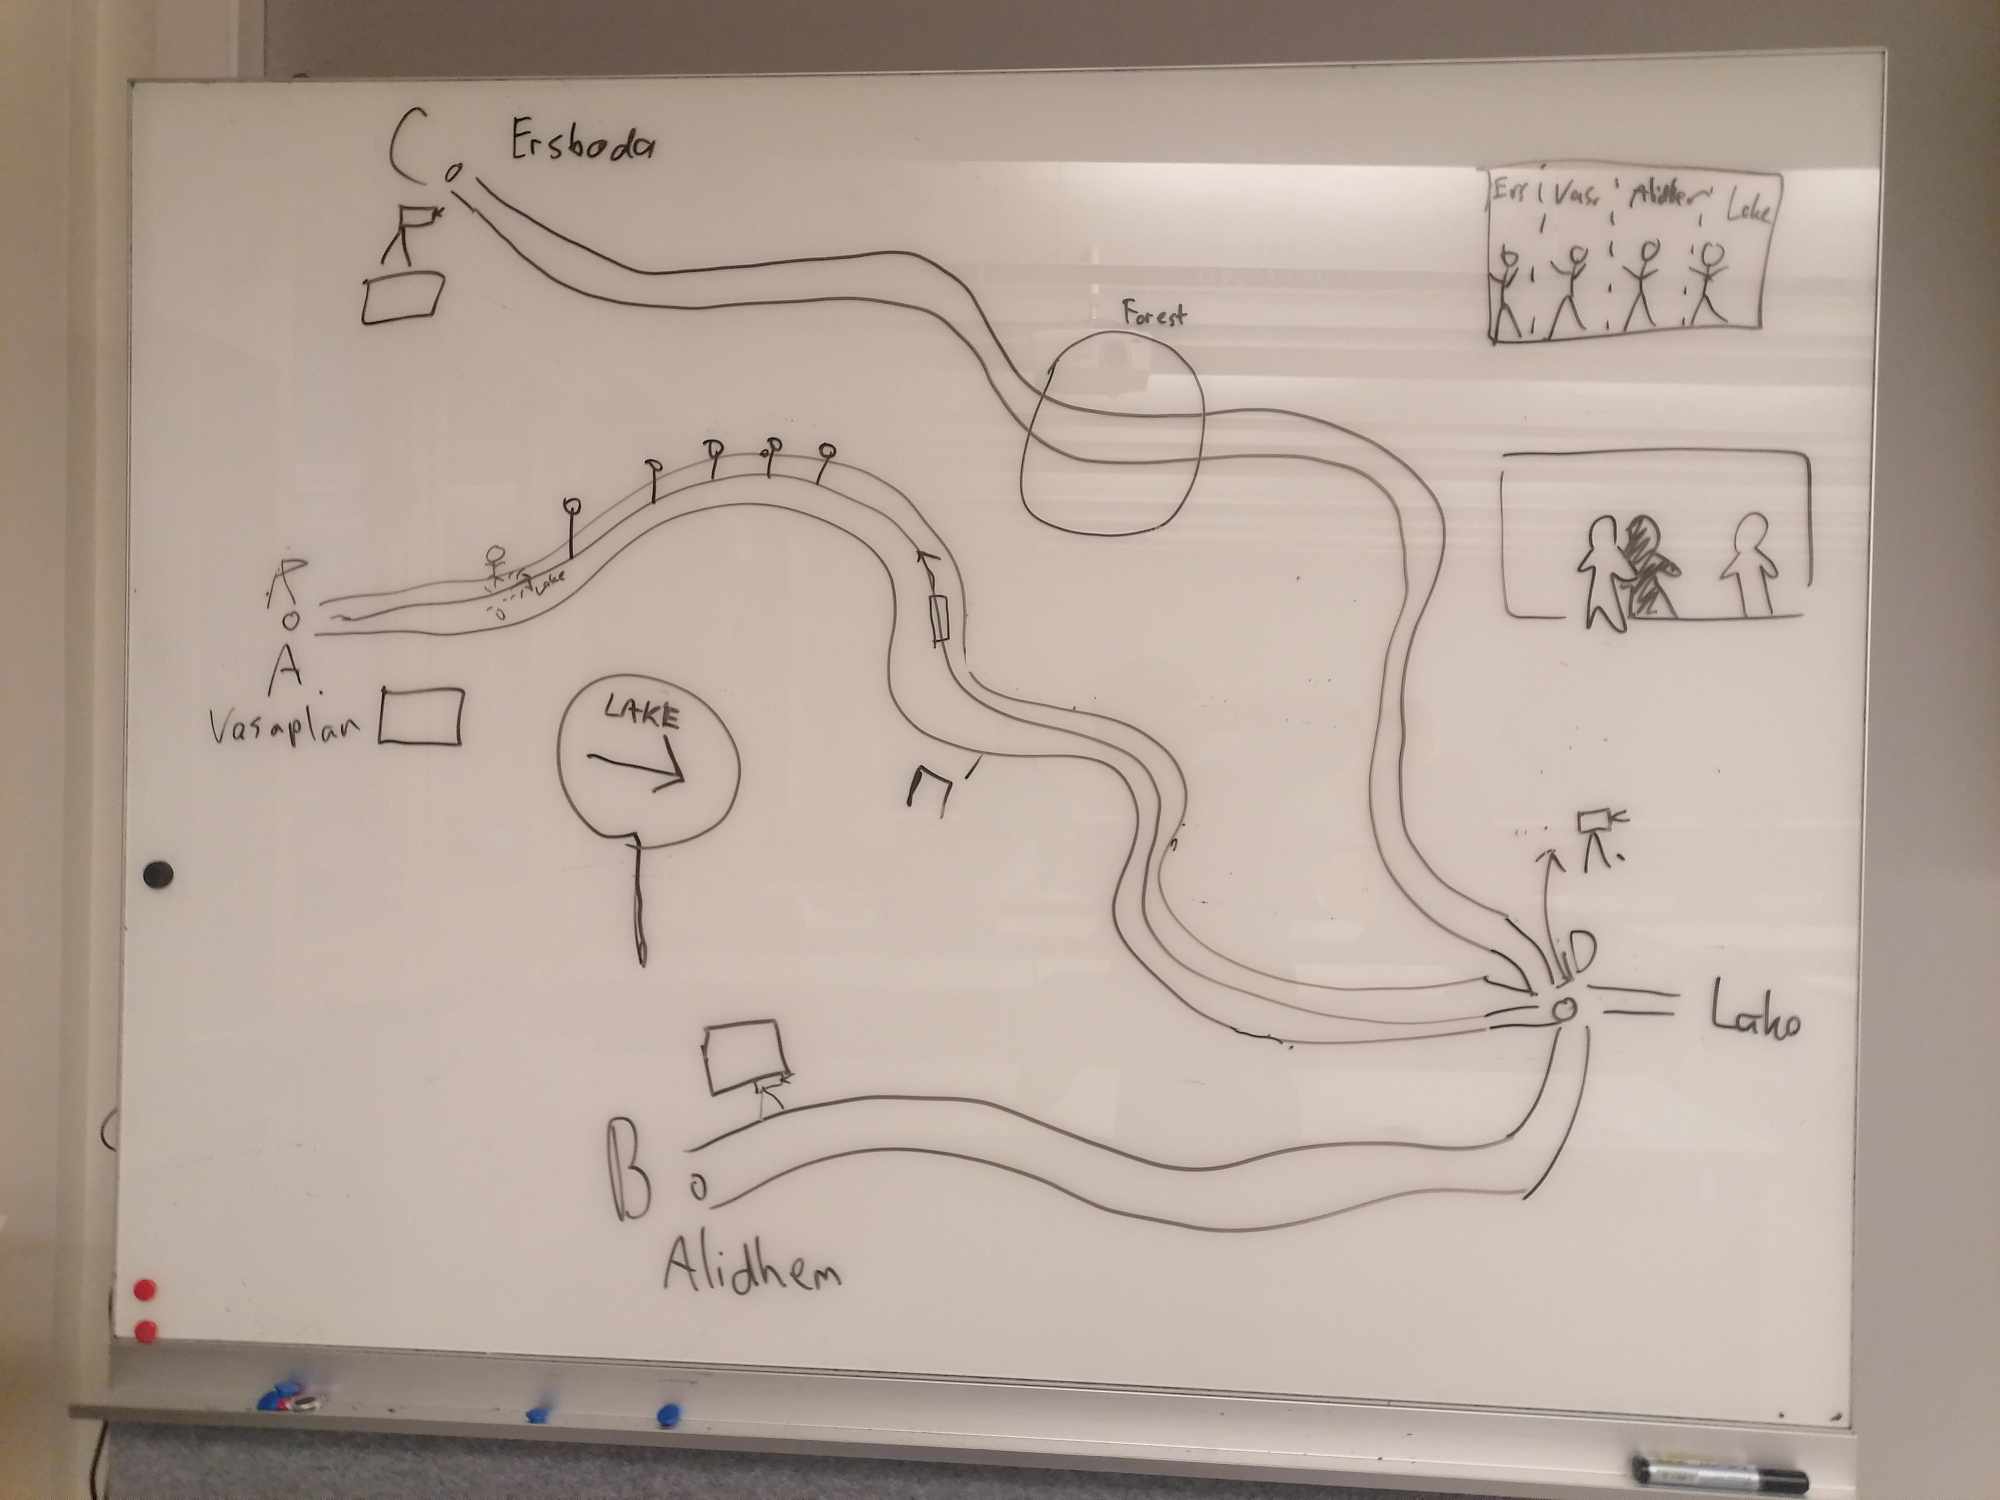 C Ersboda
Ers Vasa Alidhem Lake
Forest
Lake
A
Vasaplan
LAKE
D
Lake
B
Alidhem